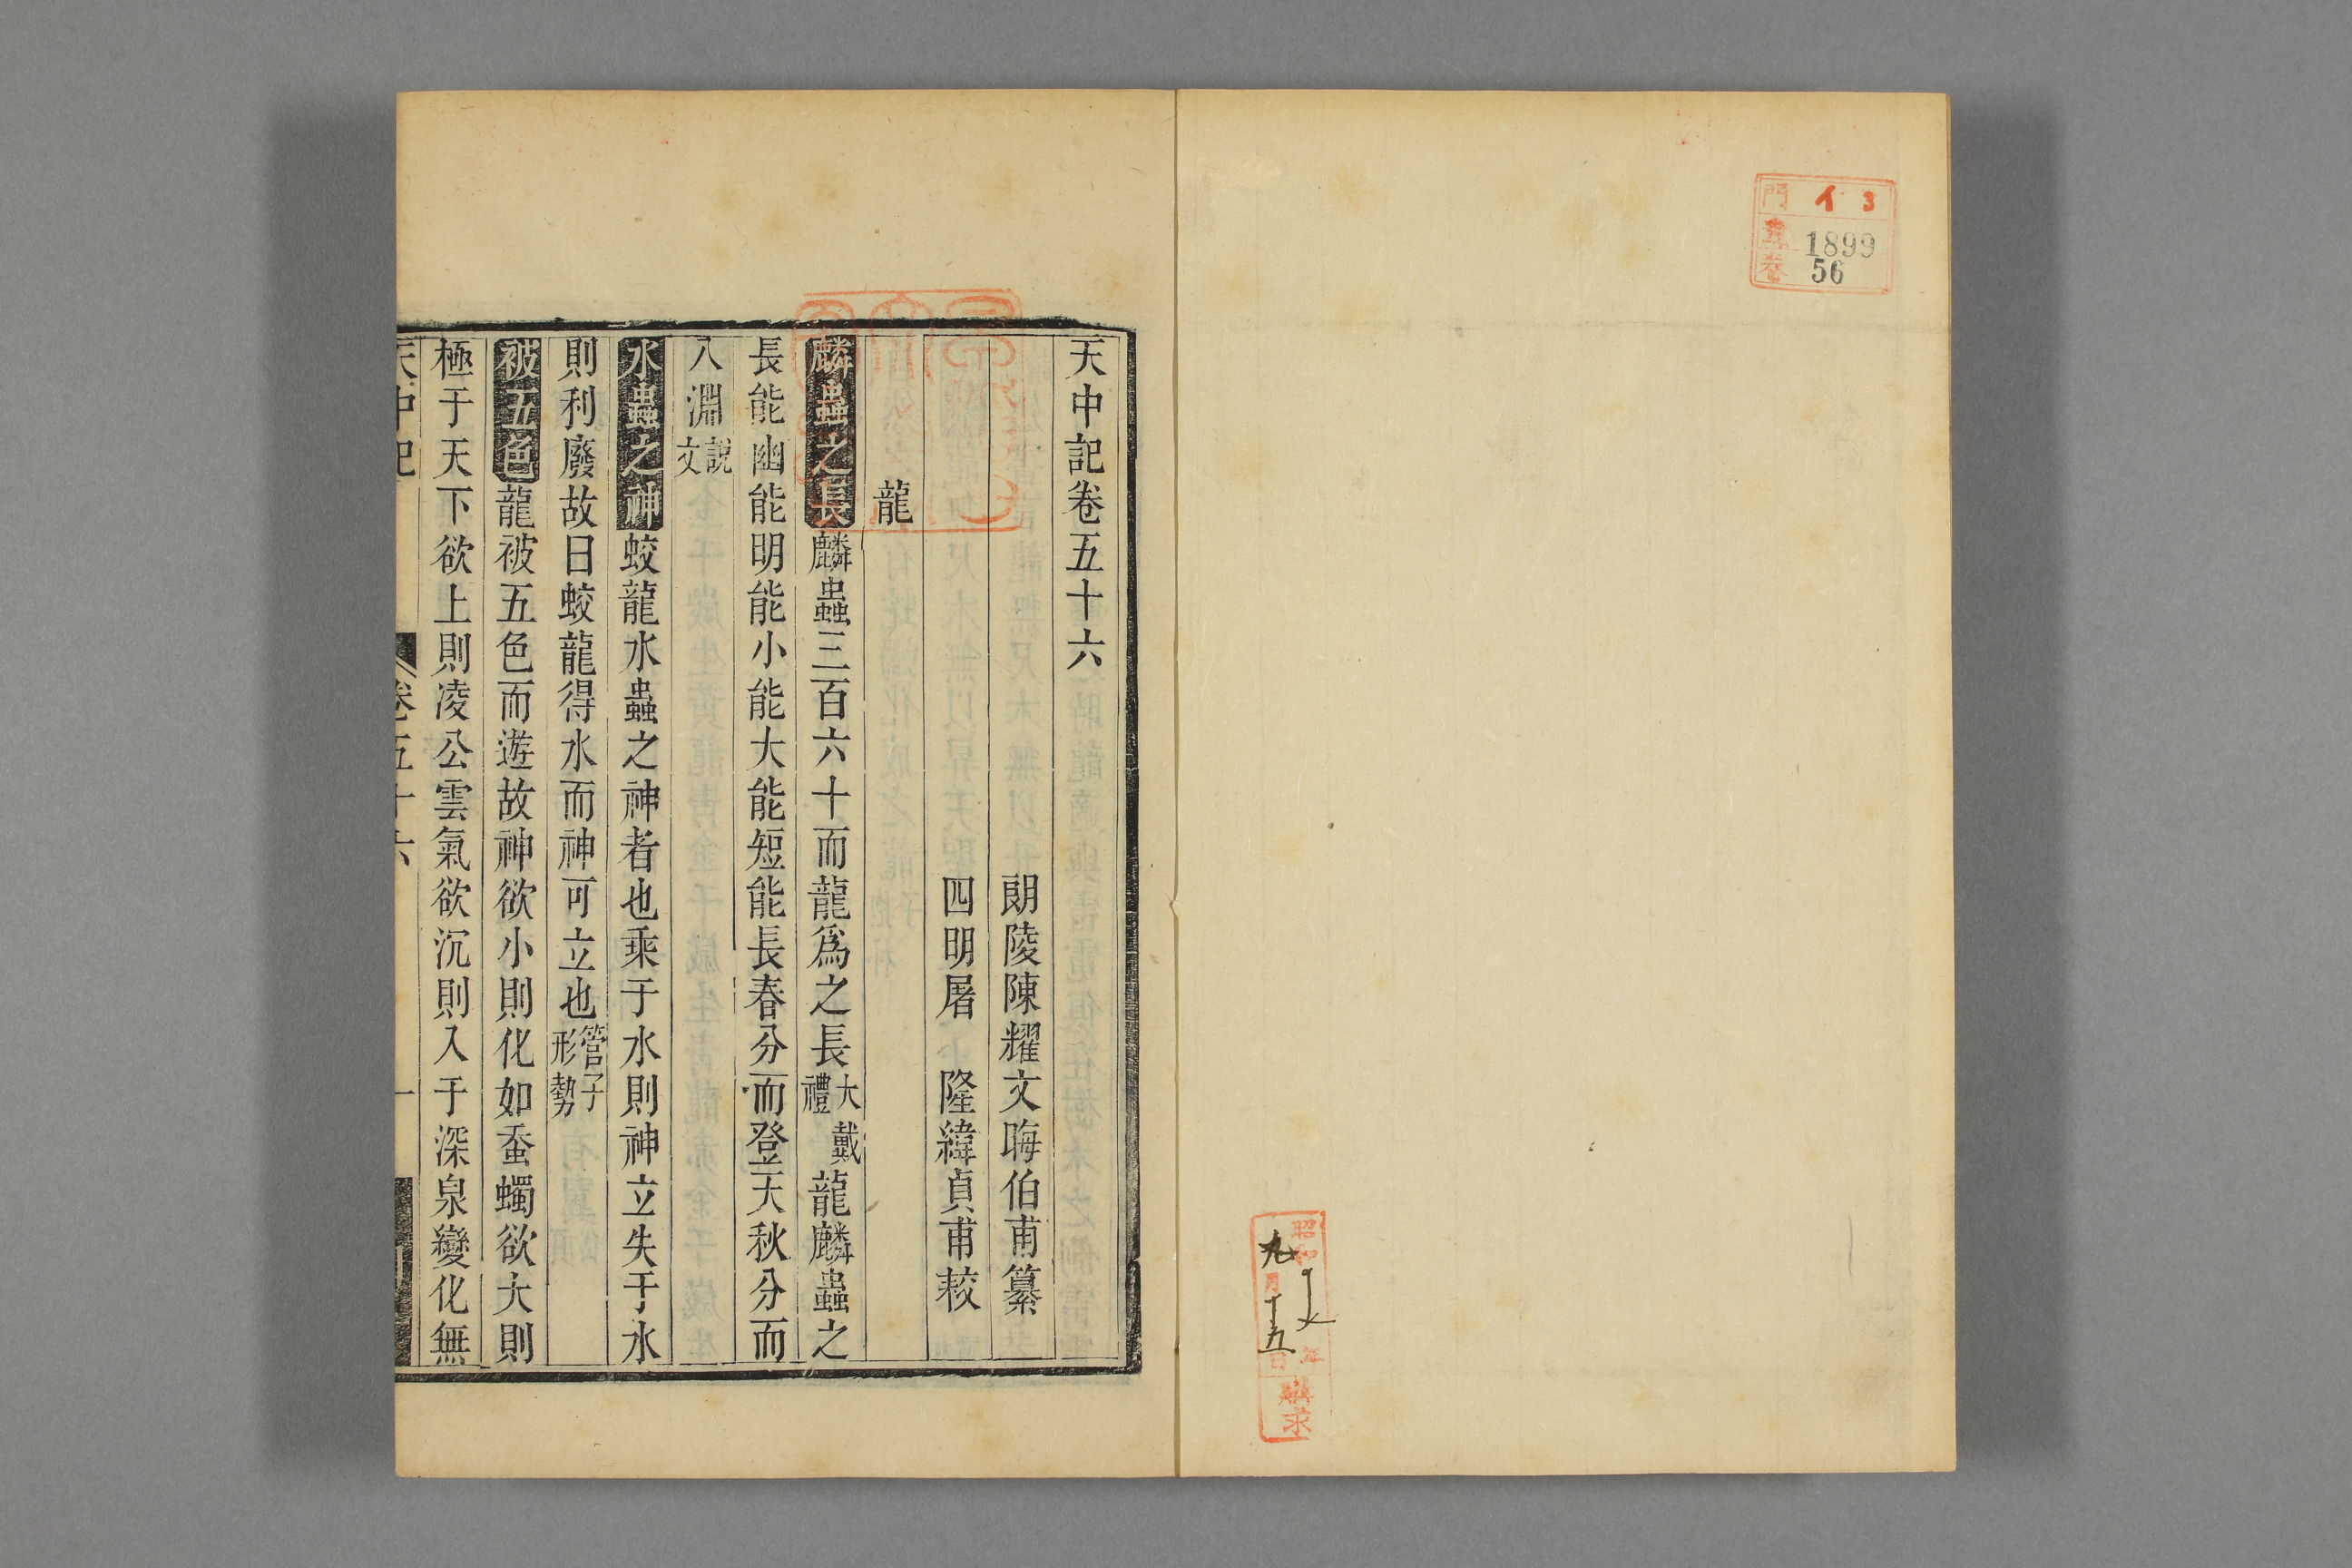 門 イ 3
號 1899
卷 56
昭和
九月十五日
年
購求
天中記卷五十六
朗陵陳耀文晦伯甫纂
四明屠 隆緯貞甫較
龍
麟蟲之長麟蟲三百六十而龍爲之長大戴禮龍麟蟲之
長能幽能明能小能大能短能長春分而登天秋分而
入淵說文
水蟲之神蛟龍水蟲之神者也乘于水則神立失于水
則利廢故日蛟龍得水而神可立也管子形勢
被五色龍被五色而遊故神欲小則化如蚕蠋欲大則
極于天下欲上則凌公雲氣欲沉則入于深泉變化無
天中記 卷五十六 一